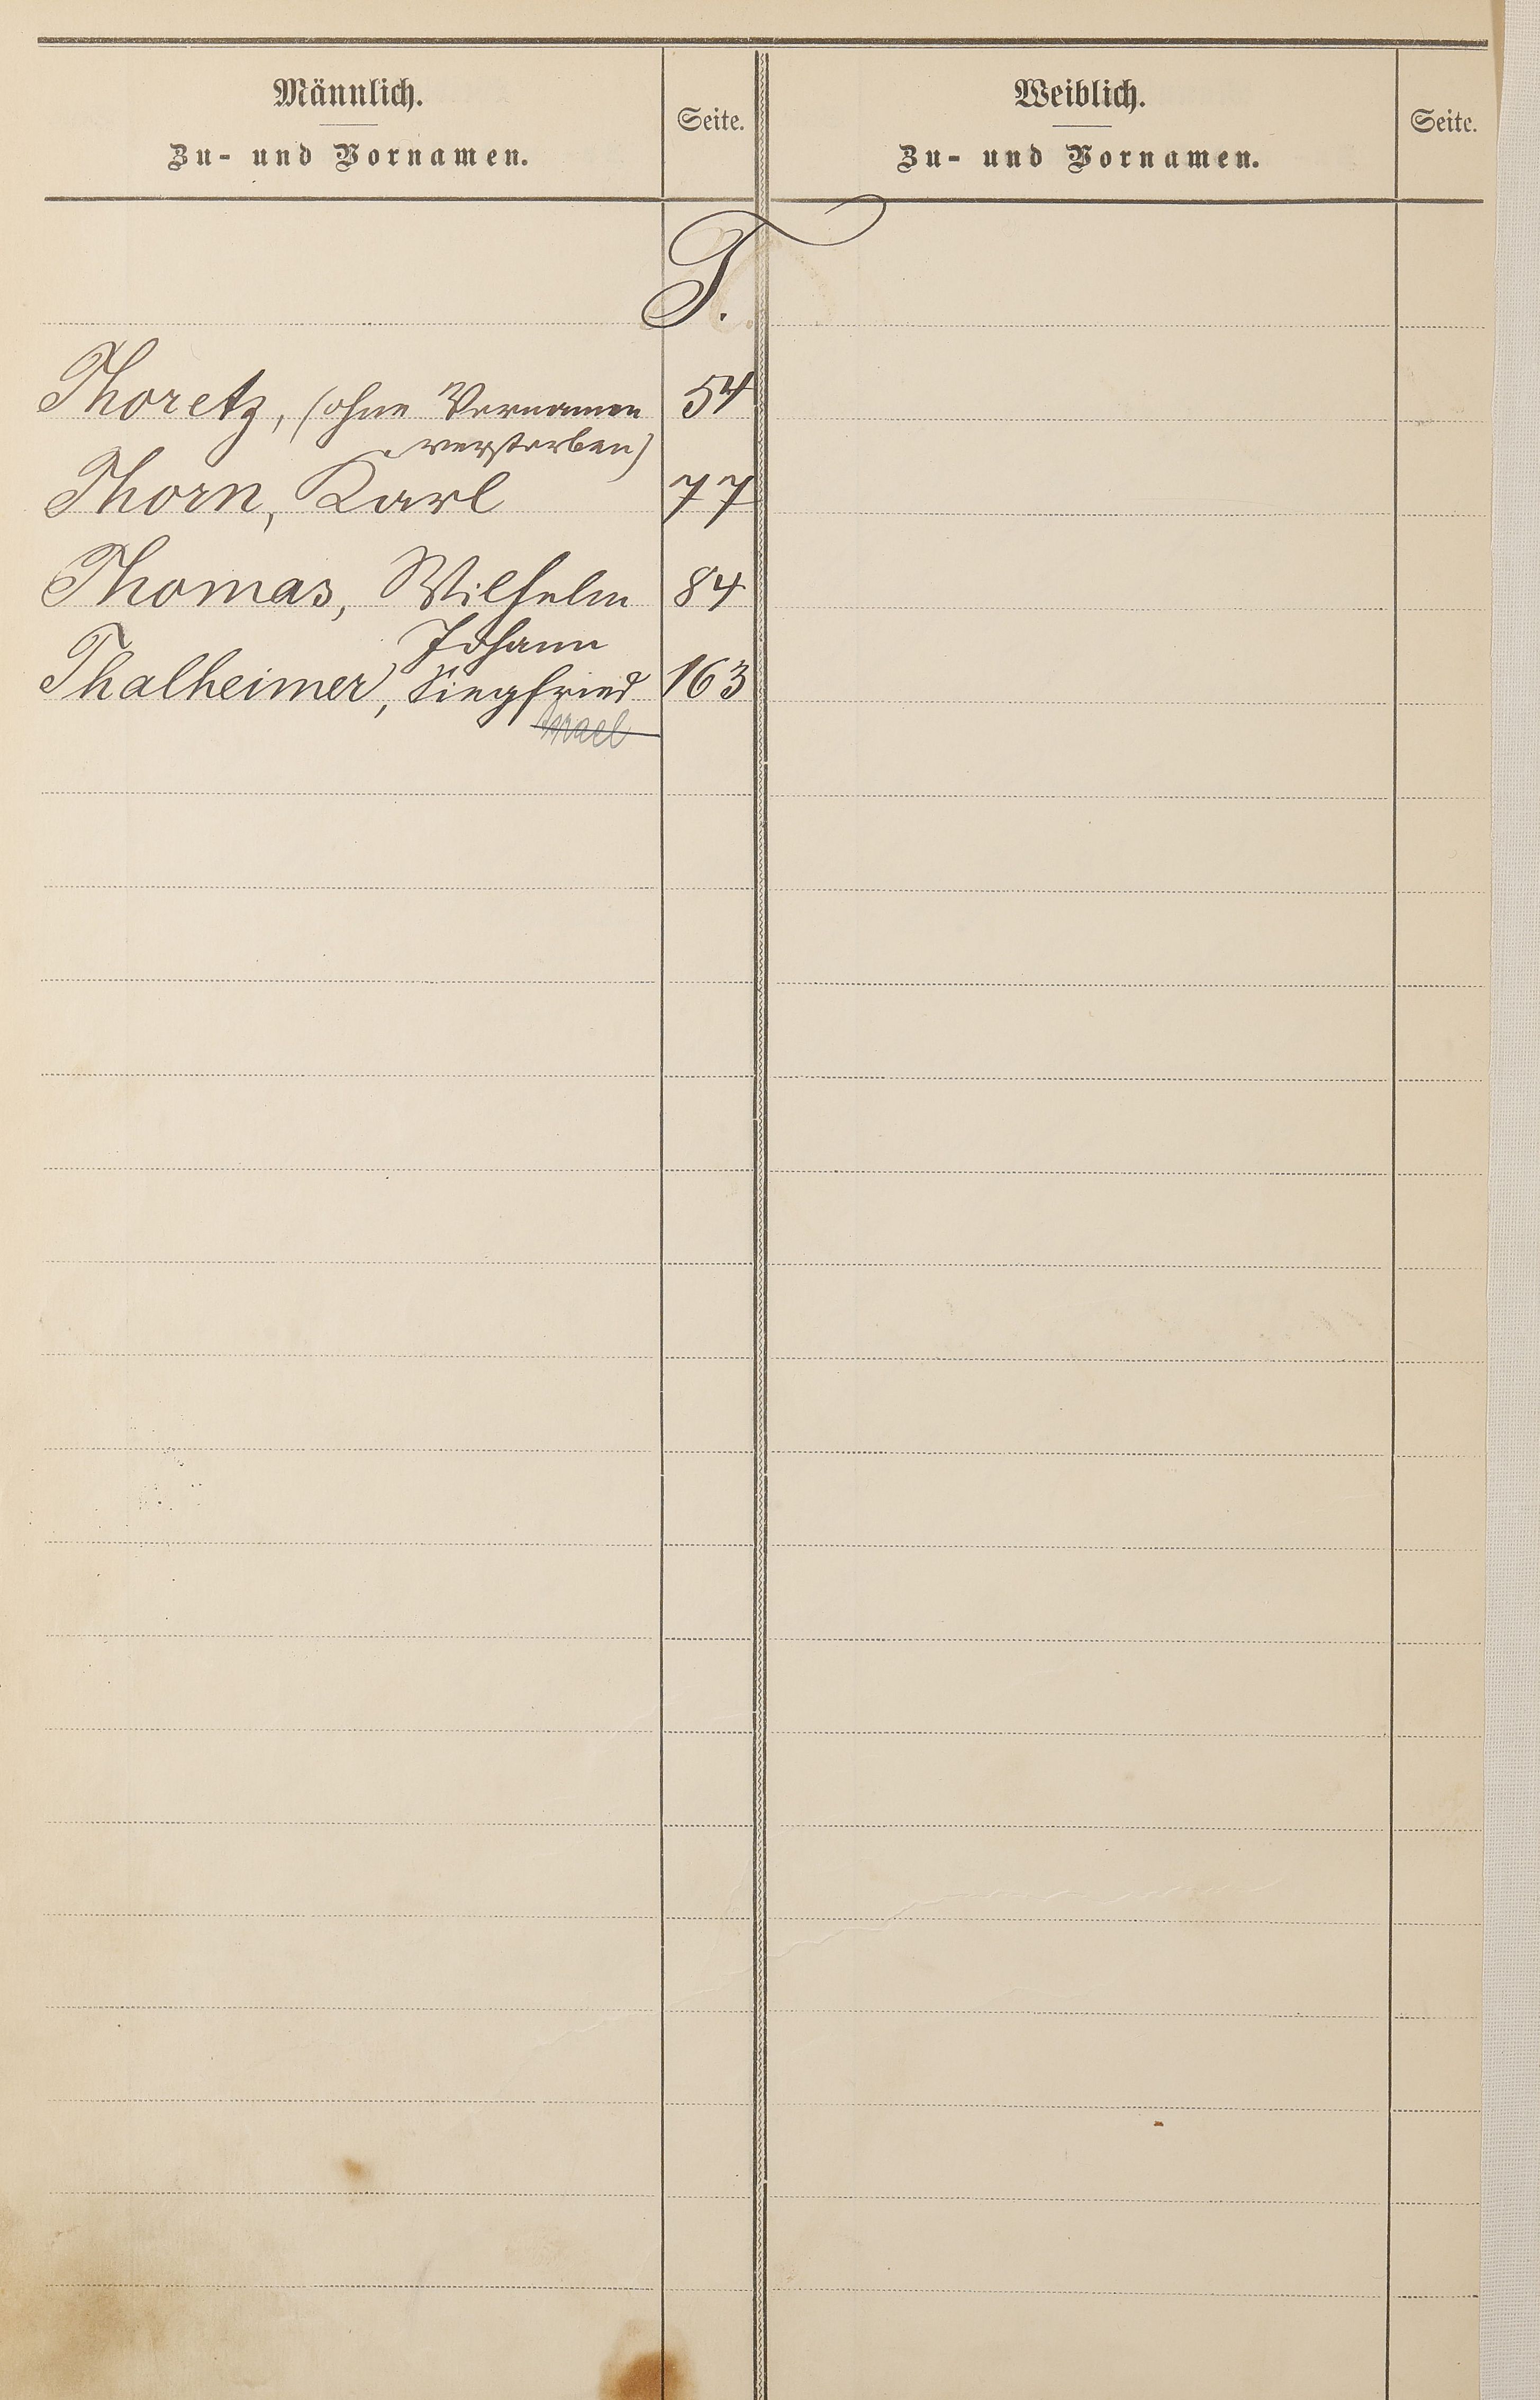 Männlich.
Zu- und Vornamen.
Seite.
Weiblich.
Zu- und Vornamen.
Seite.
T.
Thoretz, (ohne Vornamen 54
verstorben)
Thorn, Karl 77
Thomas, Wilhelm 84
Johann
Thalheimer, Siegfried 163
Israel